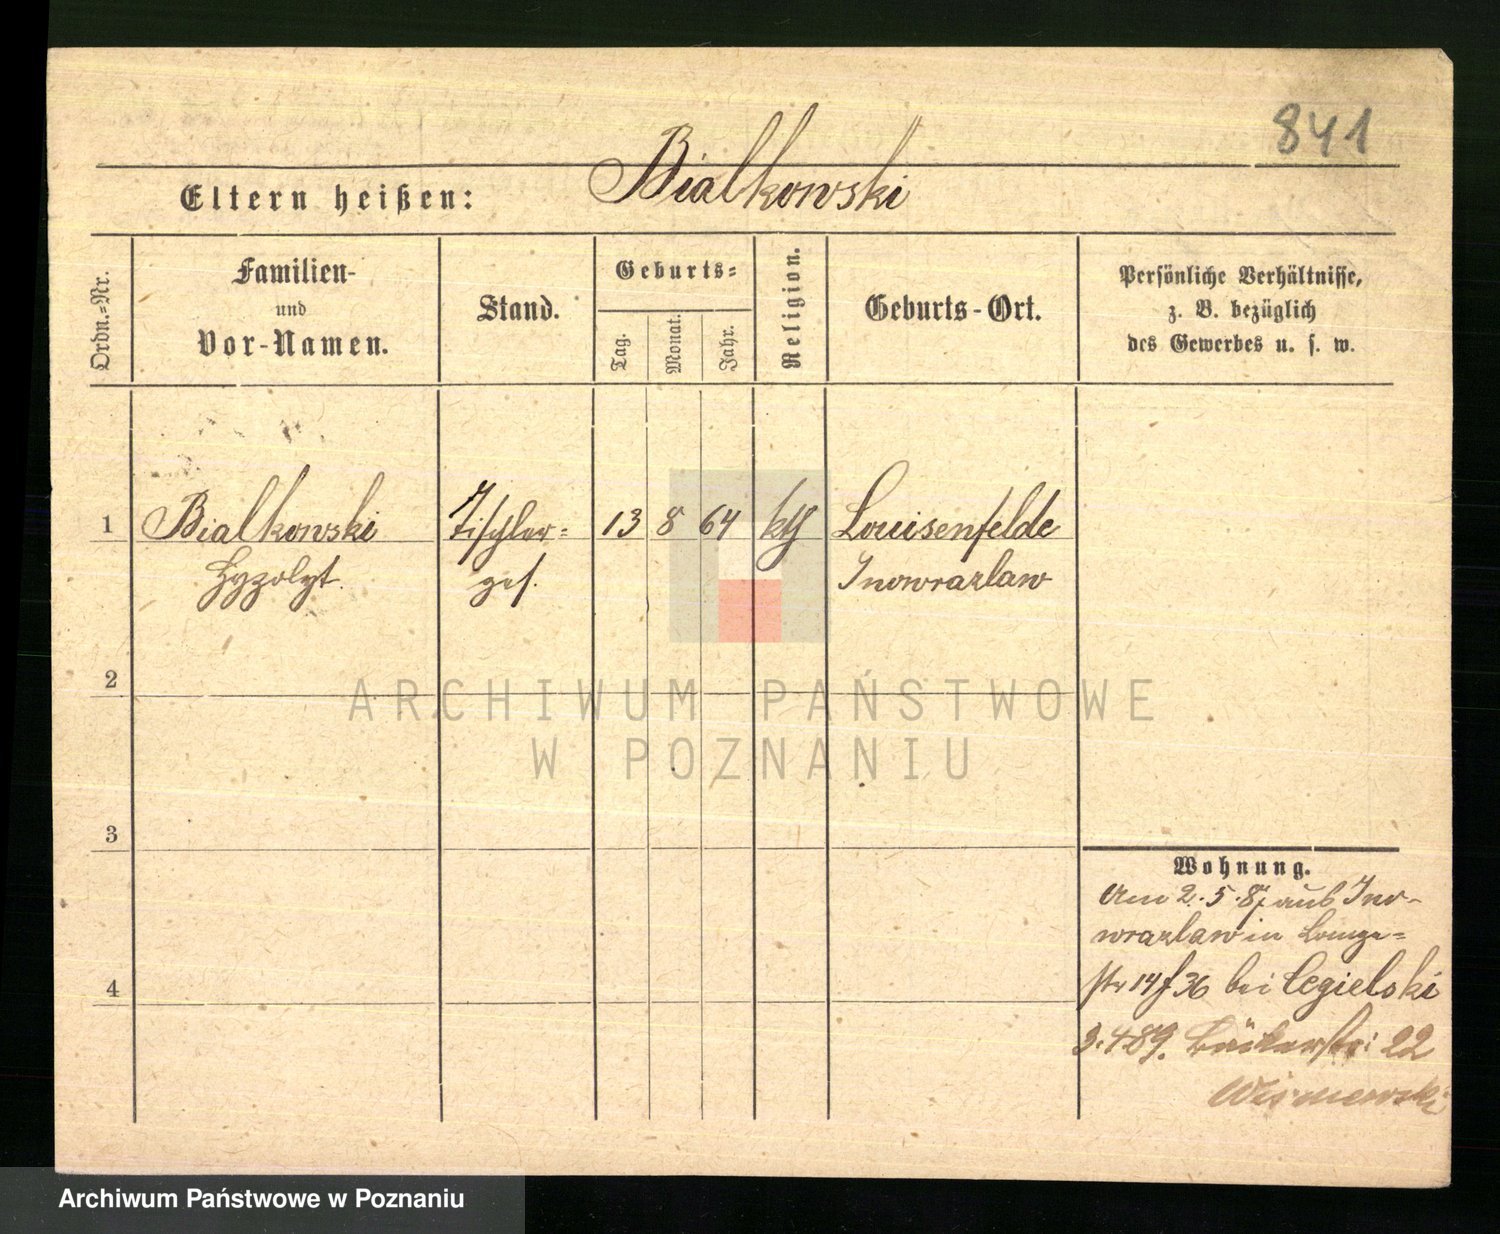 841
Bialkowski
Eltern heißen:
Ordn.-Nr.
Familien-
und
Vor-Namen.
Stand.
Geburts-
Tag.
Monat.
Jahr.
Religion.
Geburts-Ort.
Persönliche Verhältnisse,
z. B. bezüglich
des Gewerbes u. s. w.
1
Bialkowski
Tischler-
13 8 64
kth
Louisenfelde
Hypolyt
ges.
Inowrazlaw
2
ARCHIWUM PAŃSTWOWE
W POZNANIU
3
4
Wohnung.
Am 2.5.87 aus Ino-
wrazlaw in Lange-
str 14 36 bei Cegielski
3.4.89. Bäckerstr: 22
Wisniewski
Archiwum Państwowe w Poznaniu